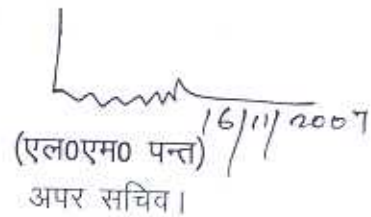 16/11/2007
(एल0एम0 पन्त)
अपर सचिव।